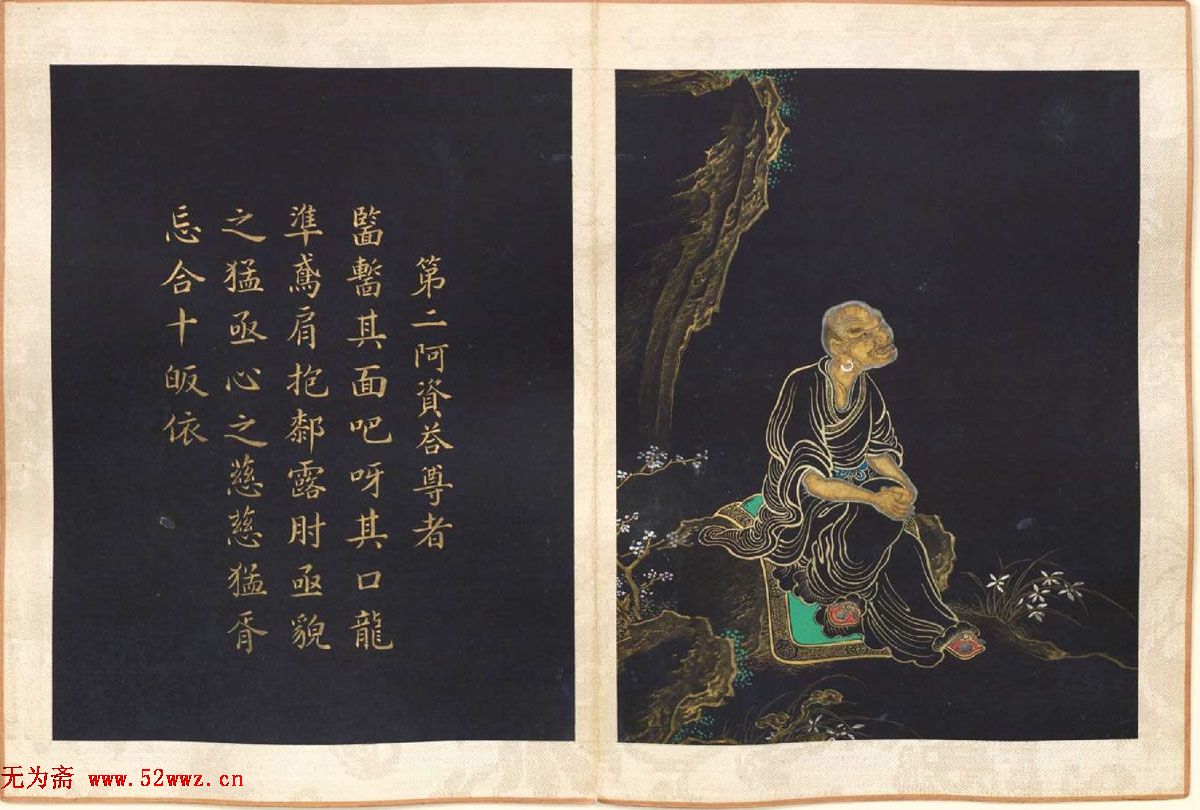 第二阿資荅尊者
其面吧呀其口龍
準鳶肩抱厀露肘亟貌
之猛亟心之慈慈猛胥
忘合十皈依
无为斋 www.52wwz.cn